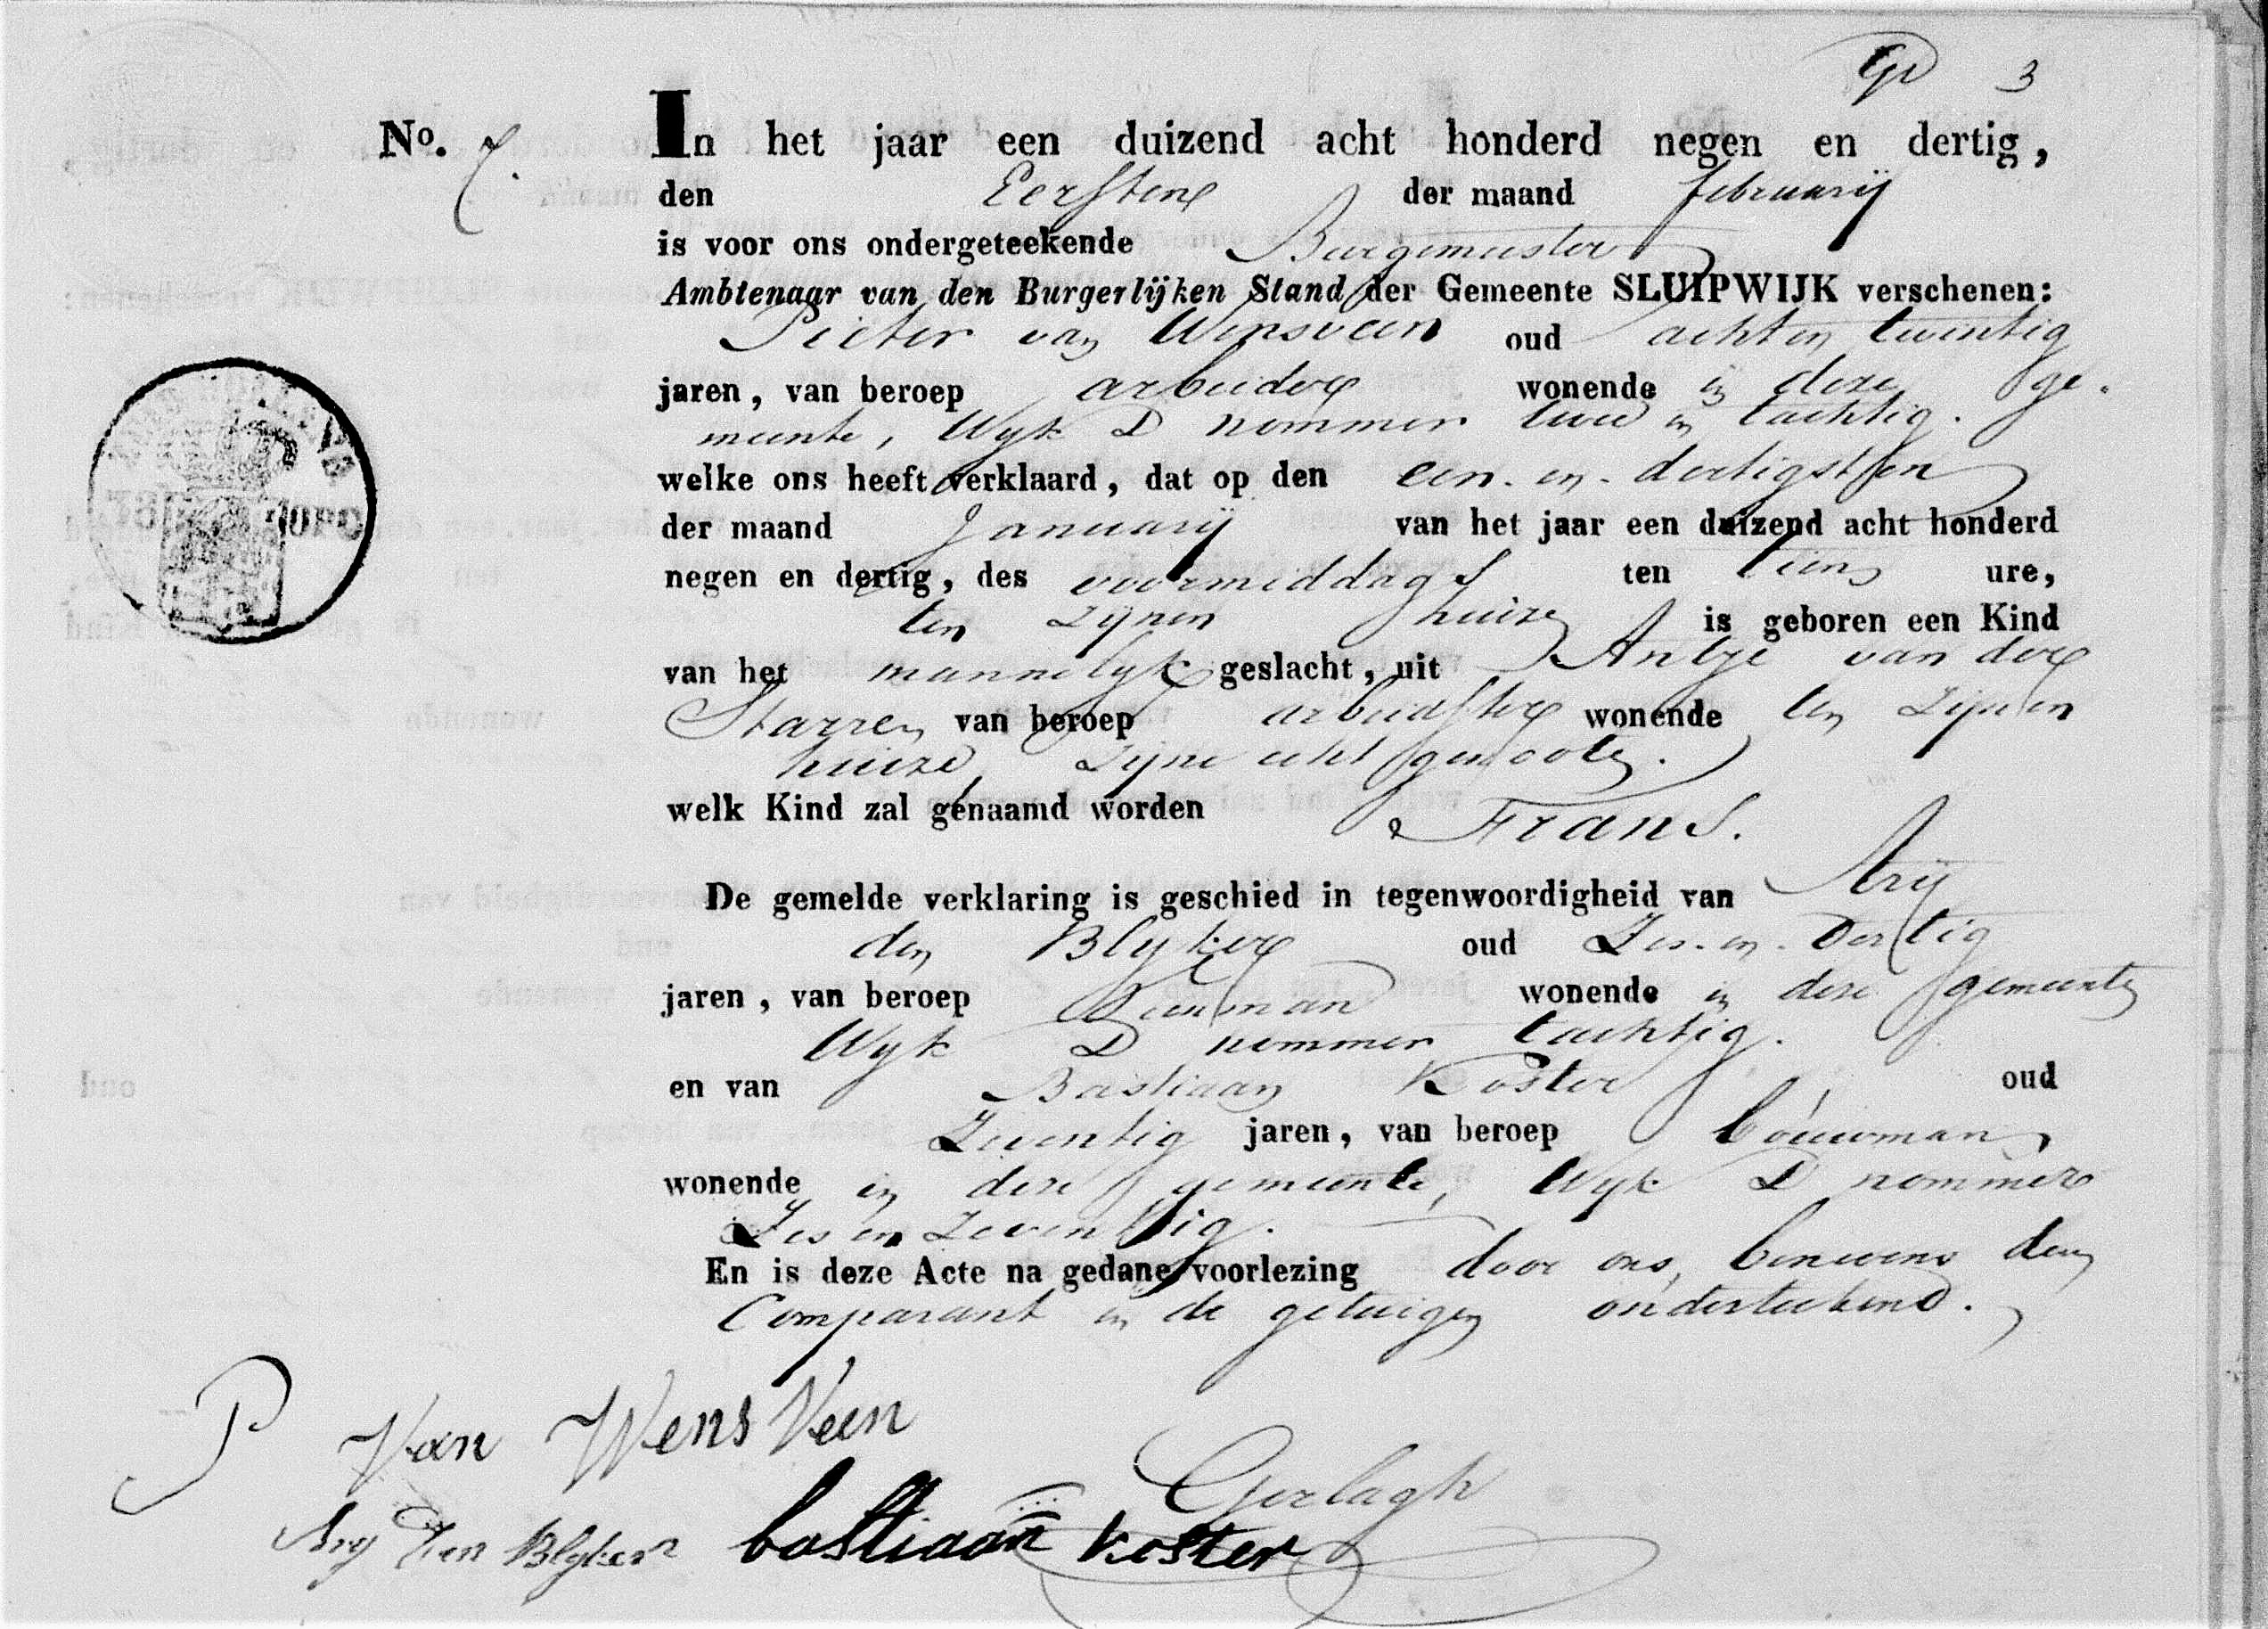 3
No. 7. In het jaar een duizend acht honderd negen en dertig,
den Eersten der maand februarij
is voor ons ondergeteekende Burgemeester
Ambtenaar van den Burgerlijken Stand der Gemeente SLUIPWIJK verschenen:
Pieter van Wensveen oud acht en twintig
jaren, van beroep arbeider wonende in deze ge-
meente, Wyk D nommer twee en tachtig.
welke ons heeft verklaard, dat op den een-en-dertigsten
der maand Januarij van het jaar een duizend acht honderd
negen en dertig, des voormiddags ten tien ure,
ten zijnen huize is geboren een Kind
van het mannelyk geslacht, uit Antje van der
Starre, van beroep arbeidster wonende ten zijnen
huize, zijne echtgenoote.
welk Kind zal genaamd worden Frans.
De gemelde verklaring is geschied in tegenwoordigheid van Arij
den Blyker oud Zes-en-Dertig
jaren, van beroep wonende in deze gemeente
Wyk D nommer tachtig.
en van Bastiaan Koster oud
Zeventig jaren, van beroep bouwman
wonende in deze gemeente, Wyk D nommer
Zes en Zeventig.
En is deze Acte na gedane voorlezing door ons, benevens den
Comparant en de getuigen onderteekend.
P van Wens Veen
Gerlagh
Ary Den Blyker bastiaan koster